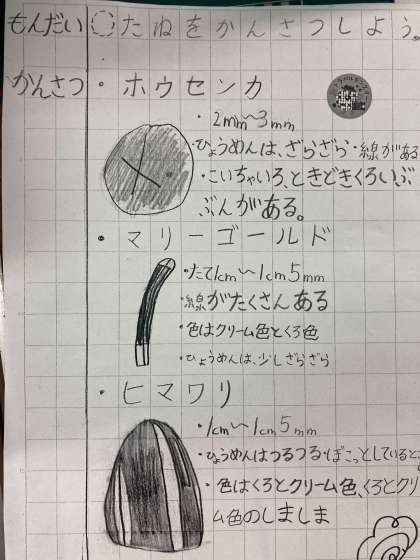 もんだい たねをかんさつしよう。
かんさつ・ホウセンカ
・2mm〜3mm
・ひょうめんは、ざらざら・線がある
・こいちゃいろ、ときどきくろいぶ
ぶんがある。
・マリーゴールド
・たて1cm〜1cm5mm
・線がたくさんある
・色はクリーム色とくろ色
・ひょうめんは、少しざらざら
・ヒマワリ
・1cm〜1cm5mm
・ひょうめんはつるつる・ぼこっとしていると
・色はくろとクリーム色、くろとクリ
ム色のしましま